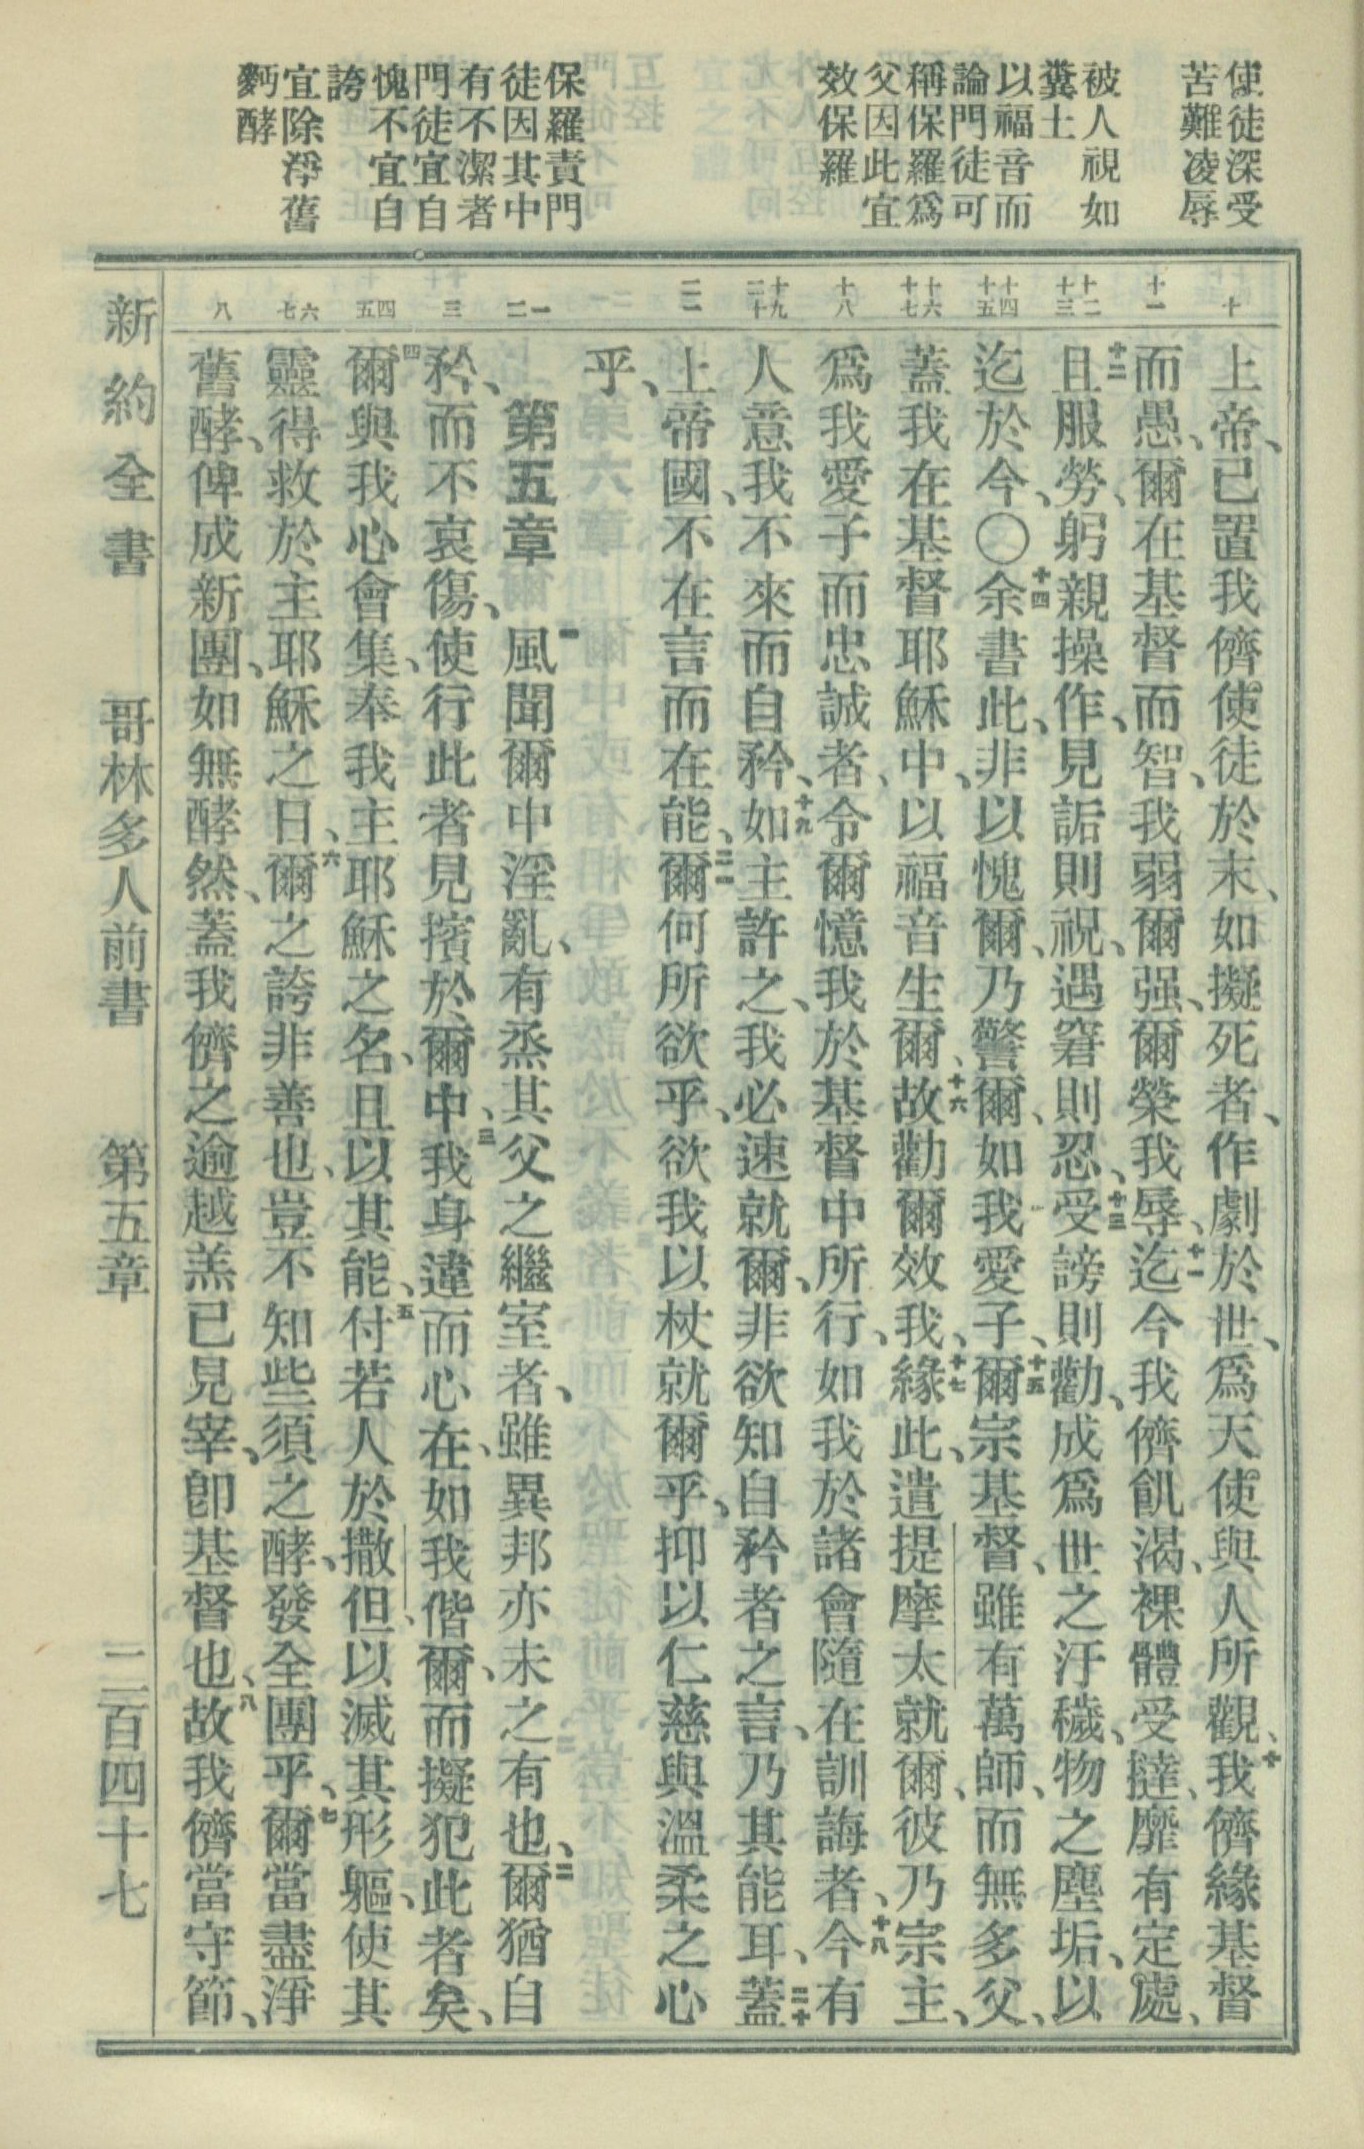 使徒深受
苦難凌辱
被人視如
糞土
以福音而
論門徒可
稱保羅爲
父因此宜
效保羅
保羅責門
徒因其中
有不潔者
門徒宜自
愧不宜自
誇
宜除淨舊
麪酵
十
十一
十二
十三
十四
十五
十六
十七
十八
十九
二十
二一
一
二
三
四
五
六
七
八
上帝、已置我儕使徒於末、如擬死者、作劇於世、爲天使與人所觀、十我儕緣基督
而愚、爾在基督而智、我弱爾强、爾榮我辱、十一迄今我儕飢渴、裸體受撻、靡有定處、
十二且服勞、躬親操作、見詬則祝、遇窘則忍、十三受謗則勸、成爲世之汙穢、物之塵垢、以
迄於今、〇十四余書此、非以愧爾、乃警爾、如我愛子、十五爾宗基督、雖有萬師、而無多父、
蓋我在基督耶穌中、以福音生爾、十六故勸爾效我、十七緣此、遣提摩太就爾、彼乃宗主、
爲我愛子而忠誠者、令爾憶我於基督中所行、如我於諸會隨在訓誨者、十八今有
人意我不來而自矜、十九如主許之、我必速就爾、非欲知自矜者之言、乃其能耳、二十蓋
上帝國、不在言而在能、二一爾何所欲乎、欲我以杖就爾乎、抑以仁慈與溫柔之心
乎、
第五章　一風聞爾中淫亂、有烝其父之繼室者、雖異邦亦未之有也、二爾猶自
矜、而不哀傷、使行此者見擯於爾中、三我身違而心在、如我偕爾、而擬犯此者矣、
四爾與我心會集、奉我主耶穌之名、且以其能、五付若人於撒但、以滅其形軀、使其
靈得救於主耶穌之日、六爾之誇非善也、豈不知些須之酵、發全團乎、七爾當盡淨
舊酵、俾成新團、如無酵然、蓋我儕之逾越羔已見宰、卽基督也、八故我儕當守節、
新約全書　哥林多人前書　第五章　二百四十七